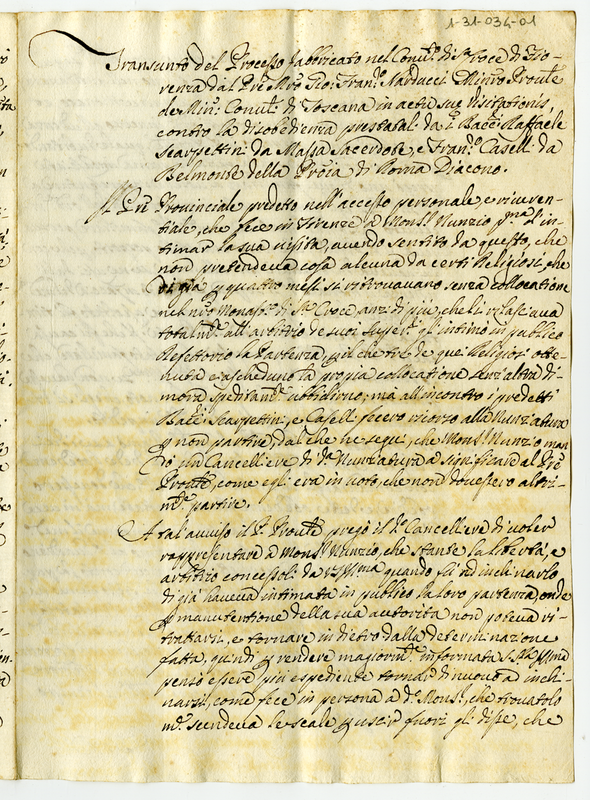 1-31-034-01
Transunto del Processo fabbricato nel Conv.to di S.ta Croce di Fio-
renza dal Pre Mro Gio: Fran.co Narducci Minro Proule
de Min: Conuli di Toscana in actu sue visitationis,
contro la disobedienza prestatali da P. Bacc: Raffaele
Scarpettini da Massa Sacerdote, e Fran.co Caselli da
Belmonte della Prouia di Roma Diacono.
Il Pre Prouinciale predetto nell'accesso personale e riueren-
tiale, che fece in Firenze a Mons.r Nunzio p.ma d'in-
timar la sua visita, auendo sentito da questo, che
non pretendeua cosa alcuna da certi Religiosi, che
di già quattro mesi si ritrouauano senza collocatione
nel nro Monast.o di S.ta Croce, anzi di più, che li rilasciaua
totalm.te all'arbitrio de suoi Super.ri gl'intimò in publico
Refettorio la Partenza, il che tre de que' Religiosi otte-
nuta ciascheduno la propia collocatione senz'altra di-
mora speditam.te ubbidirno, mà all'incontro i predetti
Bacc: Scarpettini, e Caselli fecero ricorso alla Nunziatura
p non partire, dal che ne seguì, che Mons.r Nunzio man-
dò un Cancelliere di d.a Nunziatura a significare al Pre
Proule, come egli era in uoto, che non douessero altri-
m.te partire.
A tal auuiso il P. Proule pregò il d.o Cancelliere di uoler
rappresentare a Mons.r Nunzio, che stante la libertà, e
arbitrio concessoli da VS Ill.ma quando fù ad inchinarlo
di già haueua intimata in publico la loro partenza, onde
p manutentione della sua autorità non poteua ri-
trattarsi, e tornare in dietro dalla determinazione
fatta, quindi p rendere magiorm.te informata S.S. Ill.ma
pensò essere più espediente tornar di nuouo a inchi-
narsili, come fece in persona a d.o Mons.r, che trouatolo
m.e scendeua le scale p uscir fuori gli disse, che